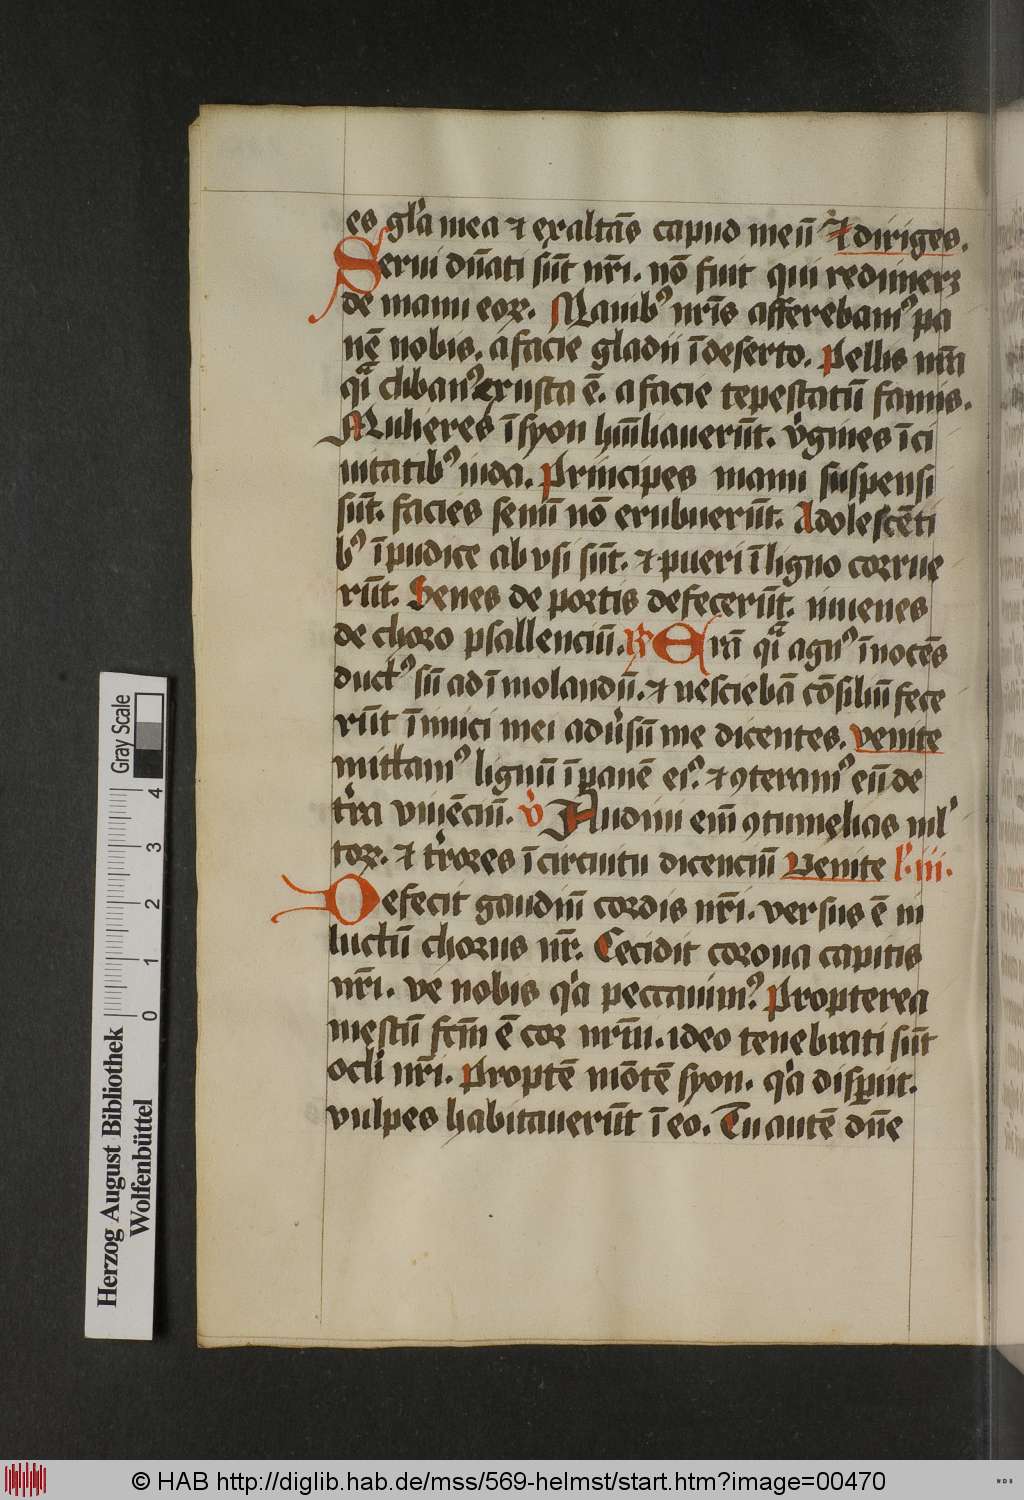 es gl̄ia mea ⁊ exaltās capud meū Et diriges.
Serui dn̄ati sūt nr̄i. nō fuit qui redimerꝫ
de manu eoꝝ. Manibꝰ nr̄is afferebamꝰ pa
nē nobis. a facie gladii ī deserto. Pellis nr̄a
qͣi clibanꝰ exusta ē. a facie tēpestatū famis.
Mulieres ī syon hūiliauerūt. v̓gines ī ci
uitatibꝰ iuda. Principes manu suspensi
sūt. facies senū nō erubuerūt. Adolescēti
bꝰ īpudice ab vsi sūt. ⁊ pueri ī ligno corrue
rūt. Senes de portis defecerūt. iuuenes
de choro psallenciū. ꝶ Erā qͣi agnꝰ īnocēs
ductꝰ sū ad īmolandū. ⁊ nesciebā cōsiliū fece
rūt īimici mei adu̓sū me dicentes. venite
mittamꝰ lignū ī panē eiꝰ. ⁊ ꝯteramꝰ eū de
tr̓ra viuēciū. v̓ Audiui em̄ ꝯtumelias ml̓
toꝝ. ⁊ tr̓rores ī circuitu dicenciū Venite l̓. iii.
Defecit gaudiū cordis nr̄i. versus ē in
luctū chorus nr̄. Cecidit corona capitis
nr̄i. ve nobis qͥa peccauimꝰ. Propterea
mestū fc̄m ē cor nr̄m. ideo tenebrati sūt
ocl̓i nr̄i. Proptē mōtē syon. qͥa disꝑiit.
vulpes habitauerūt ī eo. Tu autē dn̄e
Herzog August Bibliothek
Wolfenbüttel
Gray Scale
0 1 2 3 4
© HAB http://diglib.hab.de/mss/569-helmst/start.htm?image=00470